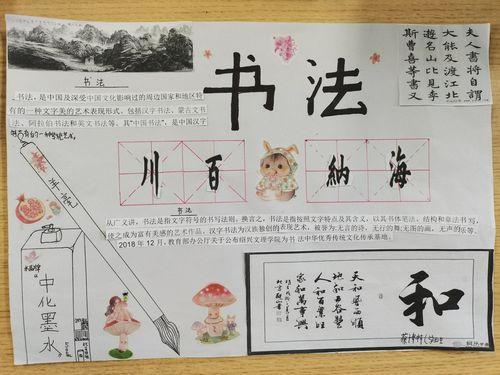 书法
书法
夫人書将自謂
大能及渡江北
遊名山比見李
斯曹喜等書又
书法，是中国及深受中国文化影响过的周边国家和地区特
有的一种文字美的艺术表现形式。包括汉字书法、蒙古文书
法、阿拉伯书法和英文书法等。其“中国书法”，是中国汉字
川百納海
书法
从广义讲，书法是指文字符号的书写法则。换言之，书法是指按照文字特点及其含义，以其书体笔法、结构和章法书写，
使之成为富有美感的艺术作品。汉字书法为汉族独创的表现艺术，被誉为:无言的诗，无行的舞;无图的画，无声的乐等。
2018年12月，教育部办公厅关于公布绍兴文理学院为书法中华优秀传统文化传承基地。
羊毫
中化墨水
和
天和
地和五谷
人和百業旺
家和萬事興